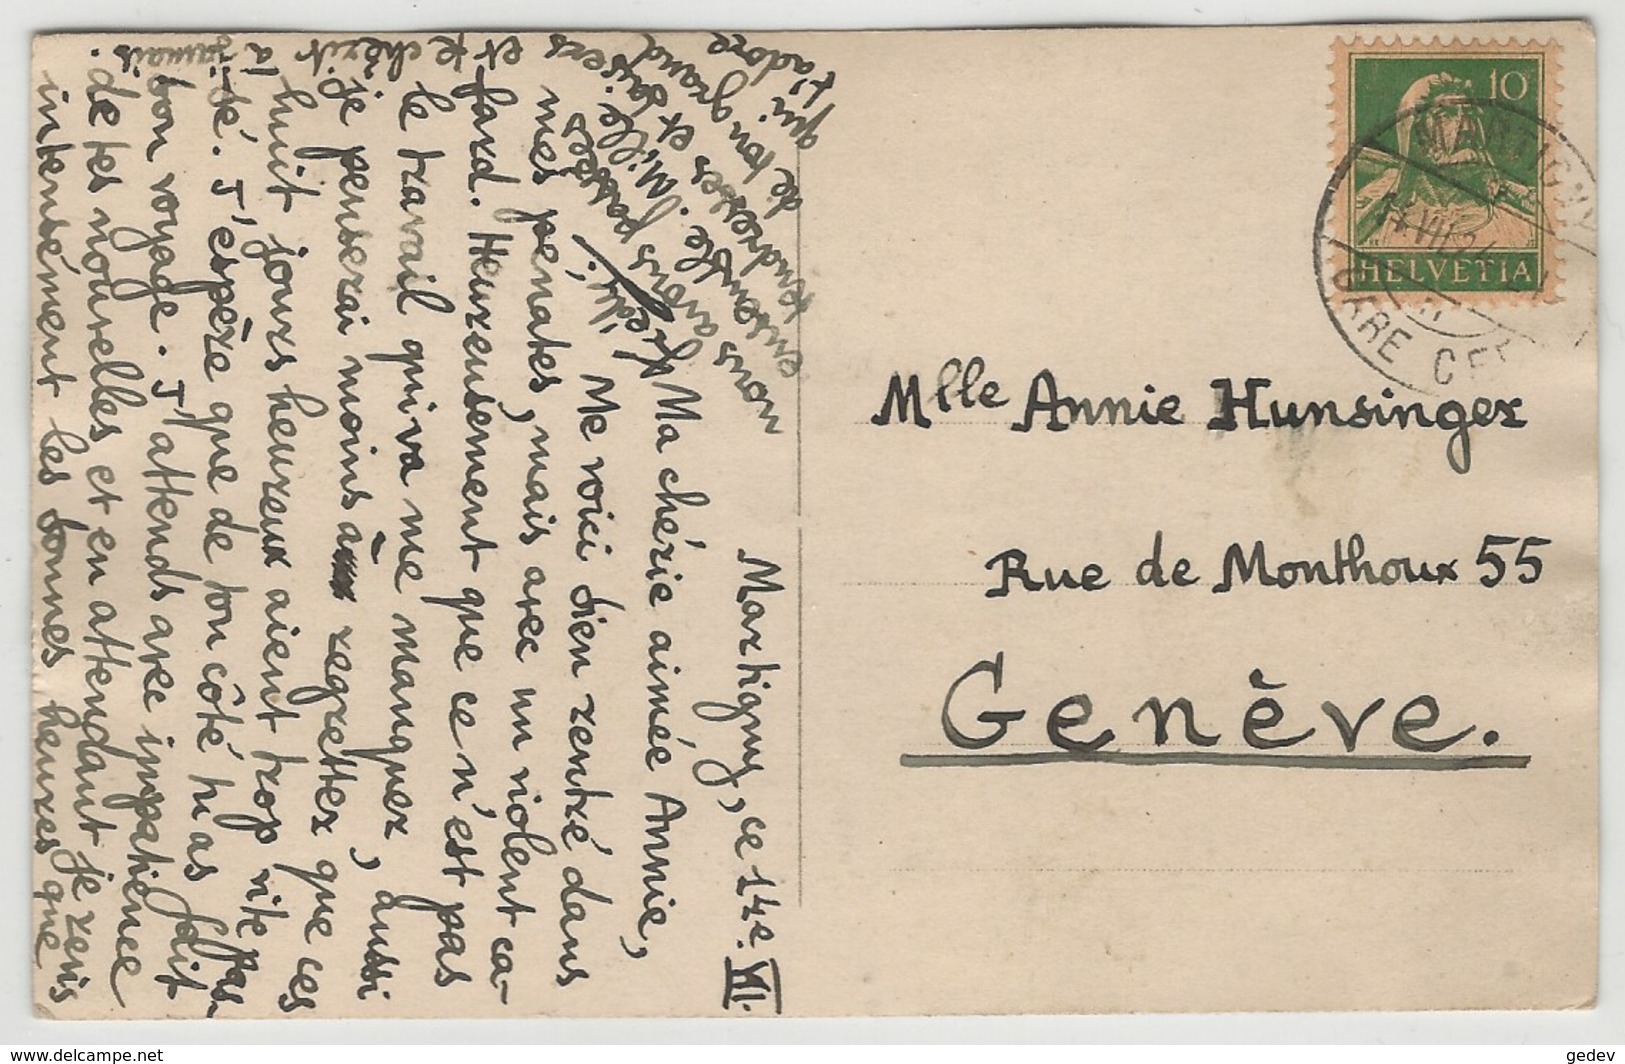 Martigny, ce 14e. VII.
Ma chérie aimée Annie,
Me voici bien rentré dans
mes pénates, mais avec un violent ca-
fard. Heureusement que ce n'est pas
le travail qui va me manquer, aussi
je penserai moins à regretter que ces
huit jours heureux aient trop vite pas-
sé. J'espère que de ton côté tu as fait
bon voyage. J'attends avec impatience
de tes nouvelles et en attendant je revis
intensément les bonnes heures que
nous avons passées
ensemble. Mille
tendresses et baisers
de ton grand
qui t'adore
et te chérit à
jamais.
Mlle Annie Hunsinger
Rue de Monthoux 55
Genève.
10
HELVETIA
MARTIGNY
14.VII.24
gedev